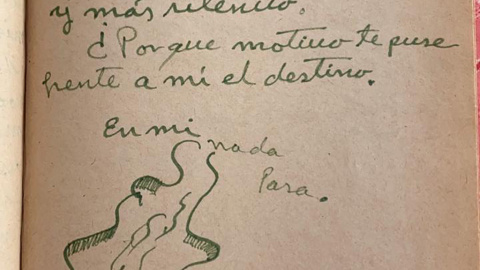 y más silencio.
¿Porque motivo te puse
frente a mí el destino.
En mi
nada
Para.